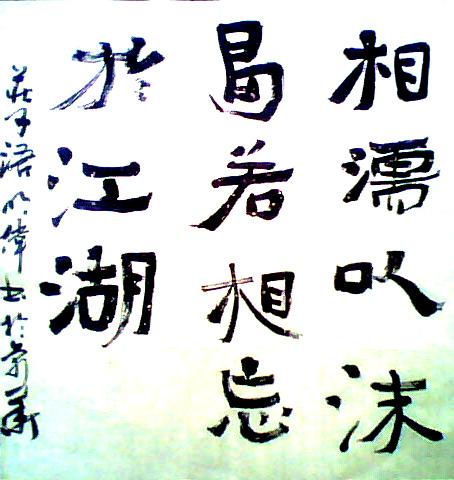 相濡以沫
曷若相忘
於江湖
莊子語 明偉 书於